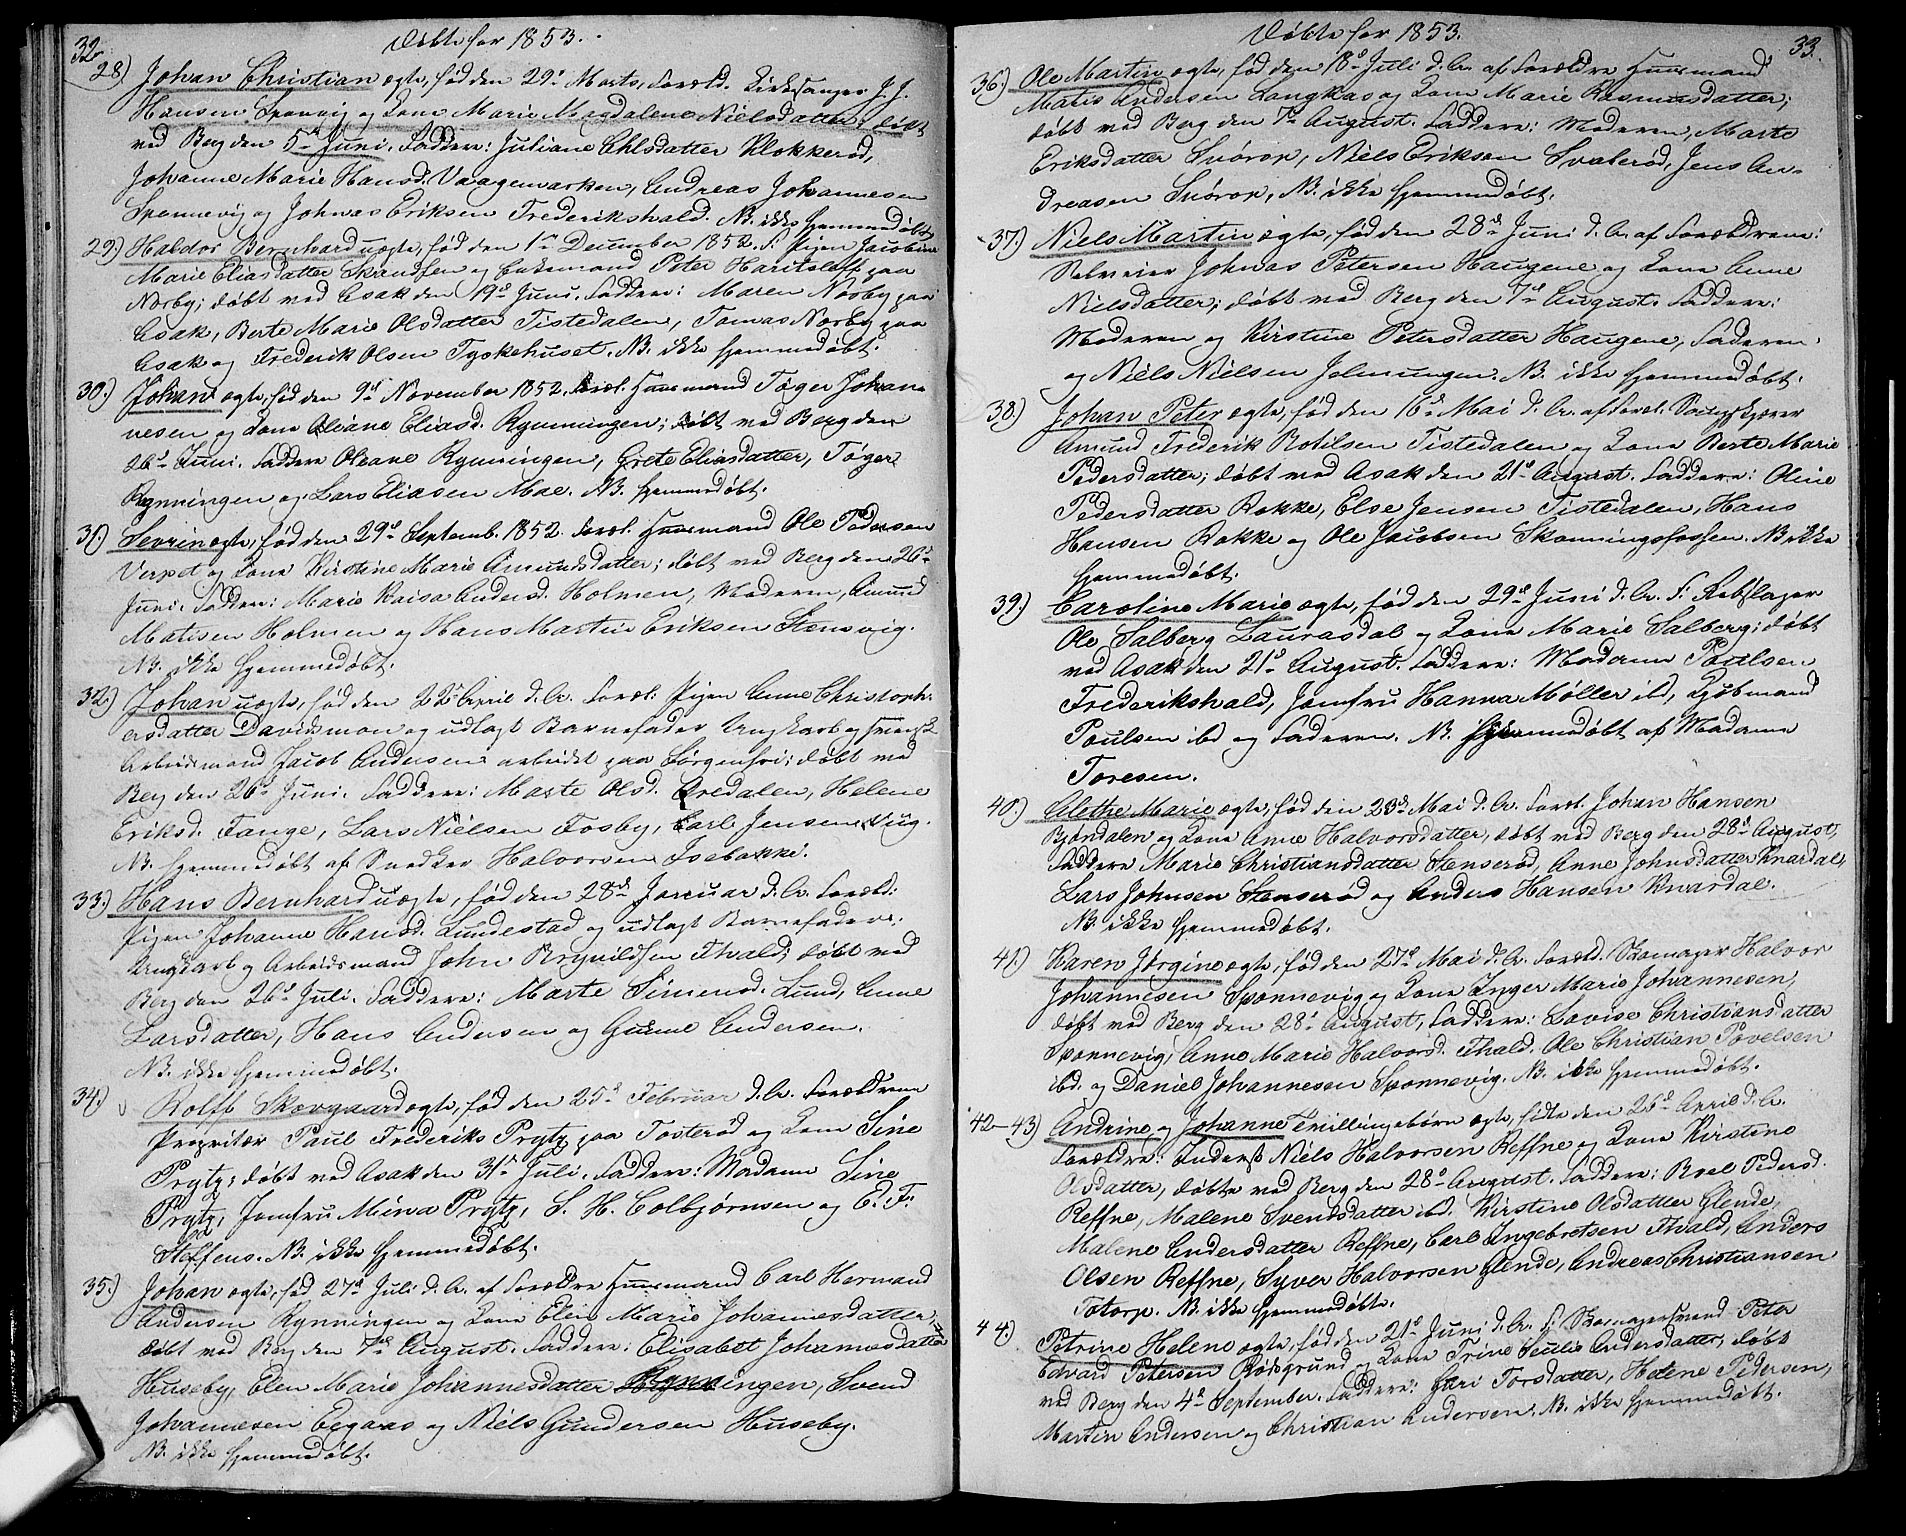 32.
Døbte for 1853.
28) Johan Christian ægte, fød den 29d Marts, Foræld. Kirkesanger J. J.
Hansen Sponvig og Kone Marie Magdalene Nielsdatter; døbt
ved Berg den 5te Juni. Faddere: Juliane Ehlsdatter Klokkerød,
Johanne Marie Hansd. Vaagemarken, Andreas Johannesen
Sponnevig og Johnas Eriksen Frederikshald. NB. ikke hjemmedøbt.
29) Haldor Bernhard uægte, fød den 1ste December 1852. F: Pigen Jacobine
Marie Eliasdatter Skandsen og Enkemand Peter
Norby; døbt ved Asak den 19d Juni. Faddere: Maren Norby paa
Asak, Berte Marie Olsdatter Tistedalen, Tomas Norby paa
Asak og Frederik Olsen Tyskehuset. NB. ikke hjemmedøbt.
30.) Johan ægte, fød den 9d November 1852. Foræl. Huusmand Tøger Johan-
nesen og Kone Oliane Eliasd. Rynningen; døbt ved Berg den
26d Juni. Faddere Oleane Rynningen, Grete Eliasdatter, Tøger
Rynningen og Lars Eliasen Moe. NB. hjemmedøbt.
31.) Sevrin ægte, fød den 29d Septemb. 1852. Foræl. Huusmand Ole Pedersen
Verpet og Kone Kirstine Marie Amundsdatter; døbt ved Berg den 26d
Juni. Faddere: Marie Raisa Andersd. Holmen, Moderen, Amund
Matisen Holmen og Hans Martin Eriksen Stensvig.
NB. ikke hjemmedøbt.
32.) Johan uægte, fød den 22d April d. A. Foræl. Pigen Anne Christoph-
ersdatter Davidsmon og udlagt Barnefader Ungkarl og svensk
Arbeidsmand Jacob Andersen arbeidet paa Sørgenfri; døbt ved
Berg den 26d Juni. Faddere: Marte Olsd. Aredalen, Helene
Eriksd. Fange, Lars Nielsen Fosby, Carl Jensen Aug.
NB. hjemmedøbt af Snedker Halvorsen Isebakke.
33.) Hans Bernhard uægte, fød den 28d Januar d. A. Foræld:
Pigen Johanne Hansd. Lundestad og udlagt Barnefader:
Ungkarl og Arbeidsmand John Brynildsen Fhald; døbt ved
Berg den 26d Juli. Faddere: Marte Simensd. Lund, Anne
Larsdatter, Hans Andersen og Gunne Andersen.
NB. ikke hjemmedøbt.
34.) Rolff Skovgaard ægte, fød den 25d Februar d. A. Forældrene
Propritær Paul Frederiks Prytz paa Tosterød og Kone Sine
Prytz; døbt ved Asak den 31d Juli. Faddere: Madame Sine
Prytz, Jomfru Mina Prytz, S. H. Colbjørnsen og C. F.
Steffens. NB. ikke hjemmedøbt.
35.) Johan ægte, fød 27d Juli d. A. af Forældre Huusmand Carl Herman
Andersen Rynningen og Kone Elen Marie Johannesdatter;
døbt ved Berg den 7de August. Faddere: Elisabet Johannesdatter
Huseby, Elen Marie Johannesdatter Rynningen, Svend
Johannesen Eegaas og Niels Gundersen Huseby.
NB. ikke hjemmedøbt.
33.
Døbte for 1853.
36) Ole Martin ægte, fød den 18d Juli d. A. af Forældre Huusmand
Matis Andersen Langkas og Kone Marie Rasmusdatter;
døbt ved Berg den 7de August. Faddere: Moderen, Marte
Eriksdatter Svörop, Niels Eriksen Svalerød, Jens An-
dreasen Svörop, NB. ikke hjemmedøbt.
37.) Niels Martin ægte, fød den 28d Juni d. A. af Forældrene:
Selveier Johnas Petersen Haugene og Kone Anne
Nielsdatter; døbt ved Berg den 7d August. Faddere:
Moderen og Kirstine Petersdatter Haugene, Faderen
og Niels Nielsen Jelmungen. NB. ikke hjemmedøbt.
38.) Johan Peter ægte, fød den 16d Mai d. A. af Foræl. Saugskjærer
Amund Frederik Rolilsen Tistedalen og Kone Berte Marie
Pedersdatter; døbt ved Asak den 21d August. Faddere: Oline
Pedersdatter Rokke, Else Jensen Tistedalen, Hans
Hansen Rokke og Ole Jacobsen Skonningsfossen. NB ikke
hjemmedøbt.
39.) Caroline Marie ægte, fød den 29d Juni d. A. F: Rebslager
Ole Salberg Laurasdal og Kone Marie Salberg; døbt
ved Asak den 21d August. Faddere: Madame Poulsen
Frederikshald, Jomfru Hanna Møller ibd, Kjøbmand
Poulsen ibd og Faderen. NB. hjemmedøbt af Madame
Toresen.
40.) Alethe Marie ægte, fød den 23d Mai d. A. Foræl. Johan Hansen
Bjørndalen og Kone Anne Halvorsdatter, døbt ved Berg den 28d August,
Faddere Marie Christiansdatter Stenserød, Anne Johnsdatter Knardal,
Lars Johnsen Stenserød og Anders Hansen Knardal.
NB. ikke hjemmedøbt.
41.) Karen Jørgine ægte, fød den 27d Mai d. A. Foræld. Skomager Halvor
Johannesen Sponnevig og Kone Inger Marie Johannesen,
døbt ved Berg den 28d August, Faddere: Lovise Christiansdatter
Sponnevig, Anne Marie Halvorsd. Fhald. Ole Christian Povelsen
ibd. og Daniel Johannesen Sponnevig. NB. ikke hjemmedøbt.
42-43) Andrine og Johanne Tvillingebørn ægte, fødte den 26d April d. A.
Forældre: Inderst Niels Halvorsen Reffne og Kone Kirstine
Olsdatter, døbte ved Berg den 28d August. Faddere: Boel Pedersd.
Reffne, Malene Svendsdatter ibd. Kirstine Olsdatter Glende,
Malene Andersdatter Reffne, Carl Ingebretsen Fhald, Anders
Olsen Reffne, Syver Halvorsen Glende, Andreas Christiansen
Totorp. NB. ikke hjemmedøbte.
44.) Petrine Helene ægte, fød den 21d Juni d. A. F: Skomagersvend Peter
Edvard Petersen Rødsgrund og Kone Trine Andersdatter; døbt
ved Berg den 4d September. Faddere: Guri Torsdatter, Helene Pedersen,
Martin Andersen og Christian Andersen. NB. ikke hjemmedøbt.